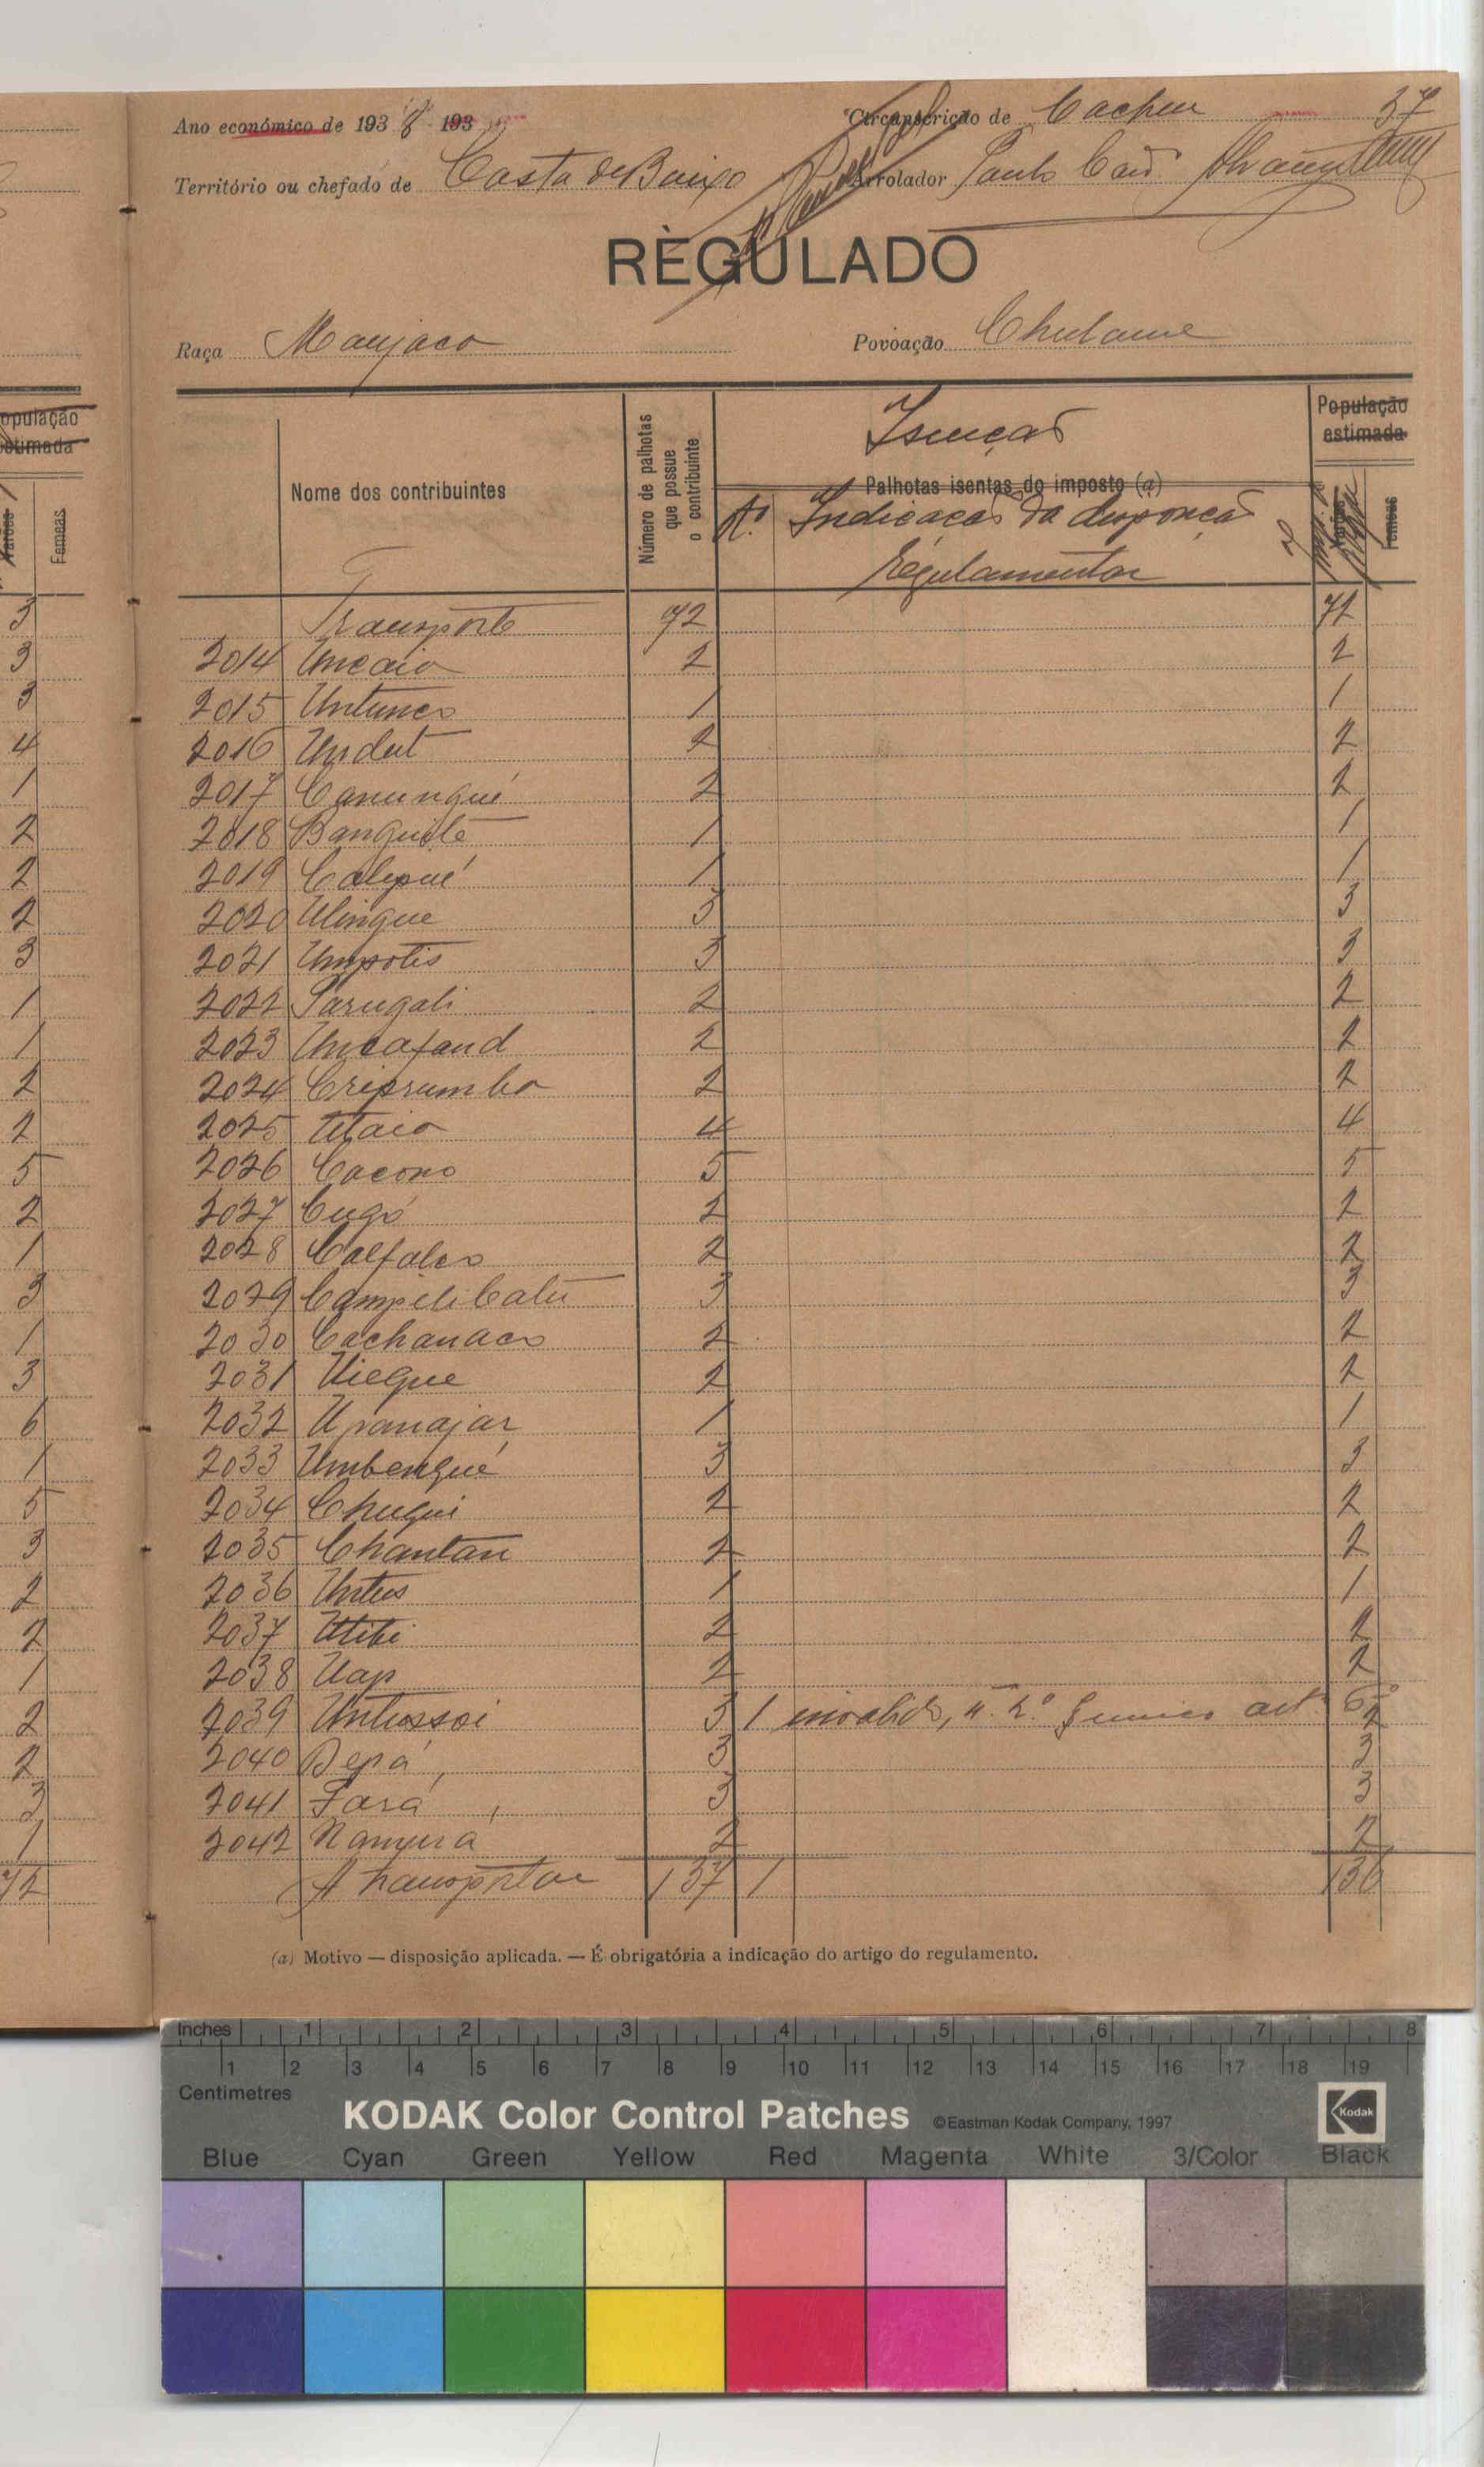 Ano económico de 1938-193
Circunscrição de Cacheu 37
Território ou chefado de Costa de Baixo
Arrolador Paulo
REGULADO
Raça Manjaco
Povoação Chulame
Nome dos contribuintes
Número de palhotas que possue o contribuinte
Isenção
Palhotas isentas do imposto (a)
Indicação da disponça
Regulamentar
População estimada
Femeas
Transporte 72 71
2014 Uncaio 2 2
2015 Untunco 1 1
2016 Undut 2 2
2017 Canungué 2 2
2018 Banguile 1 1
2019 Calepué 1 1
2020 Ulingue 3 3
2021 Umpotis 3 3
2022 Parugali 2 2
2023 Uncafand 2 2
2024 Creprumba 2 2
2025 Utaio 4 4
2026 Cacono 5 5
2027 Cugó 2 2
2028 Calfalco 2 2
2029 Campili Catu 3 3
2030 Cachanaco 2 2
2031 Uiegue 2 2
2032 Upanajar 1 1
2033 Umbengué 3 3
2034 Chugui 2 2
2035 Chantan 2 2
2036 Untus 1 1
2037 Utibi 2 2
2038 Uap 2 2
2039 Untussoi 3 1 invalido, n.º 2.º art.º 6º 2
2040 Depá 3 3
2041 Fará 3 3
2042 Nanyura 2 2
A transportar 137 1 136
(a) Motivo — disposição aplicada. — É obrigatória a indicação do artigo do regulamento.
opulação
estimada
Femeas
3
3
3
4
1
2
2
2
3
1
1
2
2
5
2
1
3
1
3
6
1
5
3
2
2
1
2
2
3
1
72
Inches 1 2 3 4 5 6 7 8
1 2 3 4 5 6 7 8 9 10 11 12 13 14 15 16 17 18 19
Centimetres
KODAK Color Control Patches ©Eastman Kodak Company, 1997 Kodak
Blue Cyan Green Yellow Red Magenta White 3/Color Black